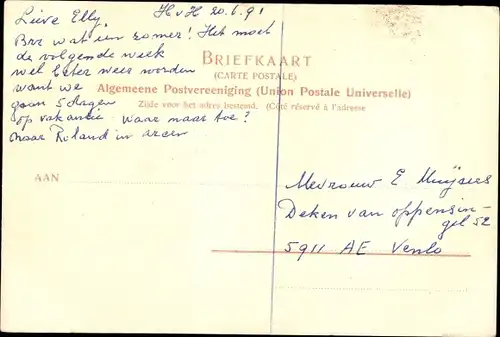 Lieve Elly, HvH 20.6.91
Brr wat een zomer! Het moet
de volgende week
wel beter weer worden
want we
gaan 5 dagen
op vakantie. waar naar toe?
naar Roland in arcen
BRIEFKAART
(CARTE POSTALE)
Algemeene Postvereeniging (Union Postale Universelle)
Zijde voor het adres bestemd. (Côté réservé à l'adresse
AAN
Mevrouw E Muijsers
Deken van oppensin-
gel 52
5911 AE Venlo